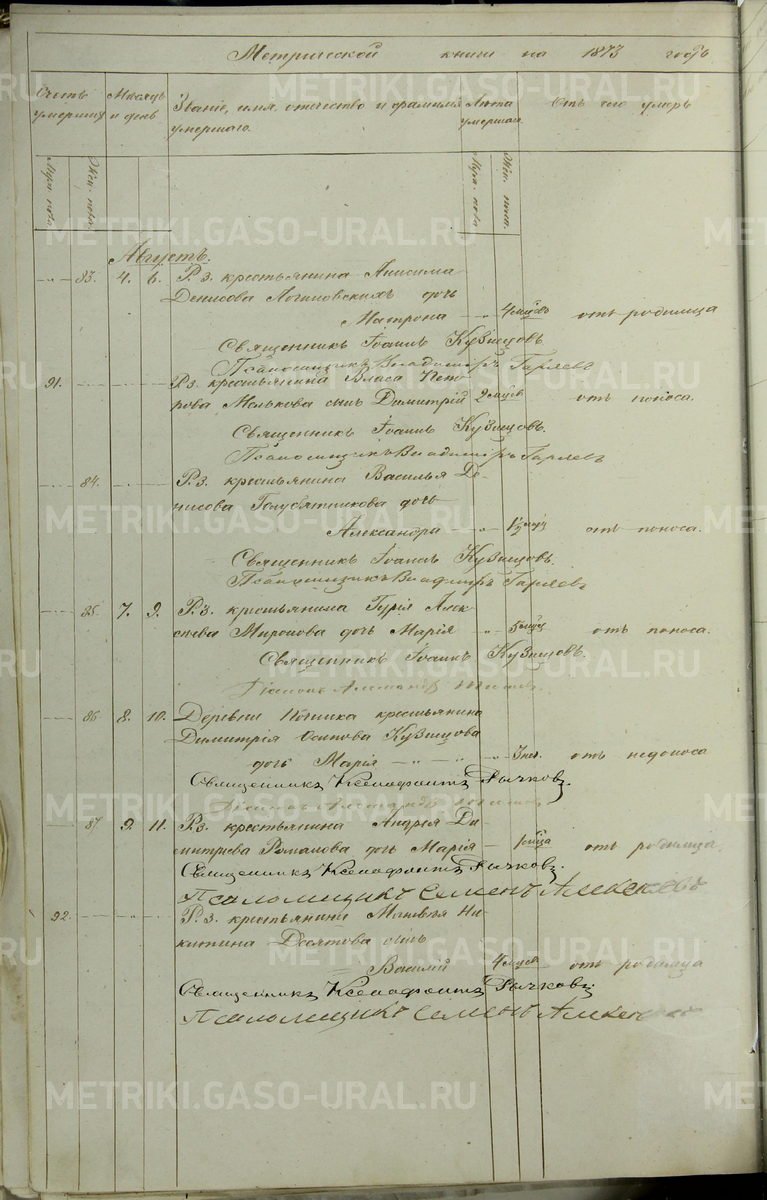 Метрической книги на 1873 годъ
Счетъ умершихъ
Мѣсяцъ и день
Званіе, имя, отчество и фамилія умершаго.
Лѣта умершаго.
Отъ чего умеръ
Муж. пола.
Жен. пола.
Муж. пола
Жен. пола.
Августъ.
83. 4. 6. Р. з. крестьянина Анисима
Денисова Логиновскихъ дочь
Матрона 4 мѣсяцевъ отъ родимца
Священникъ Іоаннъ Кузнецовъ
Псаломщикъ Владиміръ Гаряевъ
91. Р.з. крестьянина Власа Пет-
рова Малькова сынъ Димитрій 2 мѣсяцевъ отъ поноса.
Священникъ Іоаннъ Кузнецовъ.
Псаломщикъ Владиміръ Гаряевъ
84. Р.з. крестьянина Василья Де-
нисова Голубятникова дочь
Александра 1½ отъ поноса.
Священникъ Іоаннъ Кузнецовъ.
Псаломщикъ Владиміръ Гаряевъ
85. 7. 9. Р.з. крестьянина Гурія Алек-
сѣева Миронова дочь Марія 5 отъ поноса.
Священникъ Іоаннъ Кузнецовъ.
86 8. 10. Деревни крестьянина
Димитрія Осипова Кузнецова
дочь Марія 3 нед. отъ недоноса
Священникъ Ксенофонтъ Рычковъ.
87 9. 11. Р.з. крестьянина Андрея Ди-
митріева Романова дочь Марія 1 мѣсяца отъ родимца.
Священникъ Ксенофонтъ Рычковъ.
Псаломщикъ Семенъ Алексѣевъ
92. Р.з. крестьянина Матвѣя Ни-
китина Десятова сынъ
Василій 4 отъ родимца
Священникъ Ксенофонтъ Рычковъ.
Псаломщикъ Семенъ
METRIKI.GASO-URAL.RU